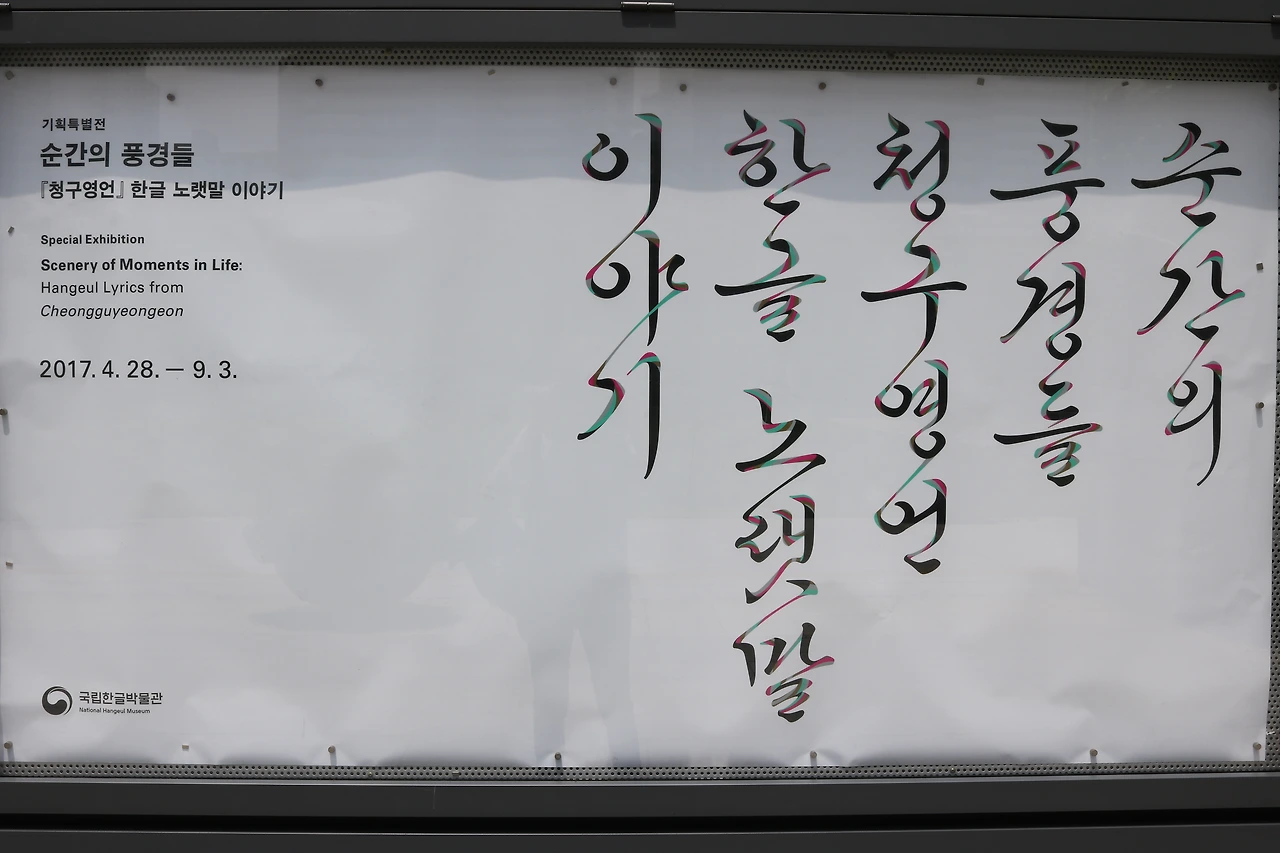 기획특별전
순간의 풍경들
『청구영언』 한글 노랫말 이야기
Special Exhibition
Scenery of Moments in Life:
Hangeul Lyrics from
Cheongguyeongeon
2017. 4. 28. — 9. 3.
순간의
풍경들
청구영언
한글 노랫말
이야기
국립한글박물관
National Hangeul Museum